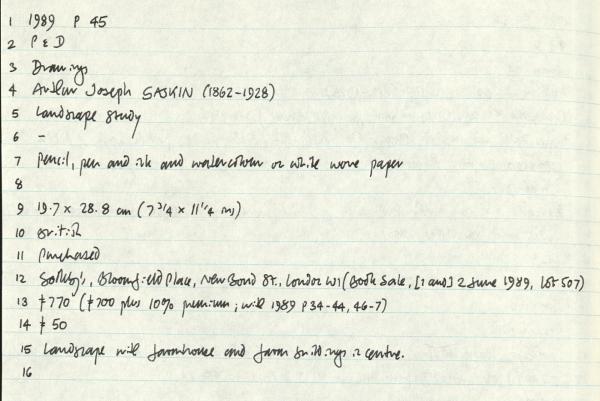 1 1989 P 45
2 P & D
3 Drawings
4 Arthur Joseph GASKIN (1862-1928)
5 Landscape study
6 -
7 Pencil, pen and ink and watercolour on white wove paper
8
9 19.7 x 28.8 cm (7 3/4 x 11 1/4 ins)
10 British
11 Purchased
12 Sotheby's, Bloomfield Place, New Bond St., London W1 (Book Sale, [1 and] 2 June 1989, lot 507)
13 £770 (£700 plus 10% premium; with 1989 P 34-44, 46-7)
14 £50
15 Landscape with farmhouse and farm buildings in centre.
16